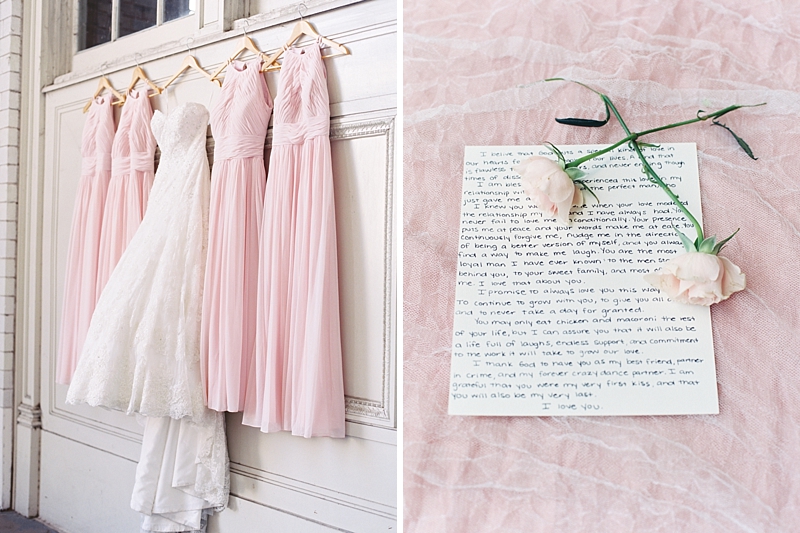 I belive that God puts a special kind of love in
our hearts for our lives. A kind that
is flawless and never ending though
times of diss
I am bles experienced this love in my
relationship wi the perfect man, so
just gave me a
I knew you w when your love molded
the relationship my and I have always had. You
never fail to love me unconditionally. Your presence
puts me at peace and your words make me at ease. You
continuously forgive me, nudge me in the direction
of being a better version of myself, and you always
find a way to make me laugh. You are the most
loyal man I have ever known: to the men
behind you, to your sweet family, and most
me. I love that about you.
I promise to always love you this way
To continue to grow with you, to give you all
and to never take a day for granted.
You may only eat chicken and macaroni the rest
of your life, but I can assure you that it will also be
a life full of laughs, endless support, and commitment
to the work it will take to grow our love.
I thank God to have you as my best friend, partner
in crime, and my forever crazy dance partner. I am
grateful that you were my very first kiss, and that
you will also be my very last.
I love you.